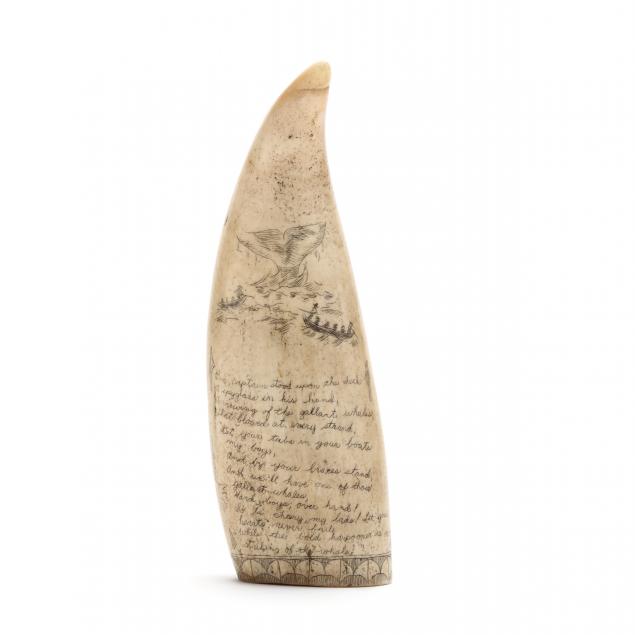 captain stood upon the deck
spyglass in his hand,
viewing of the gallant whales
that blowed at every strand,
Get your tubs in your boats
my boys,
And by your braces stand
And we'll have one of those
gallant whales,
Hand, boys, over hand!
So be cheery my lads! Let your
hearts never fail
While the bold harpooner is a
striking of the whale